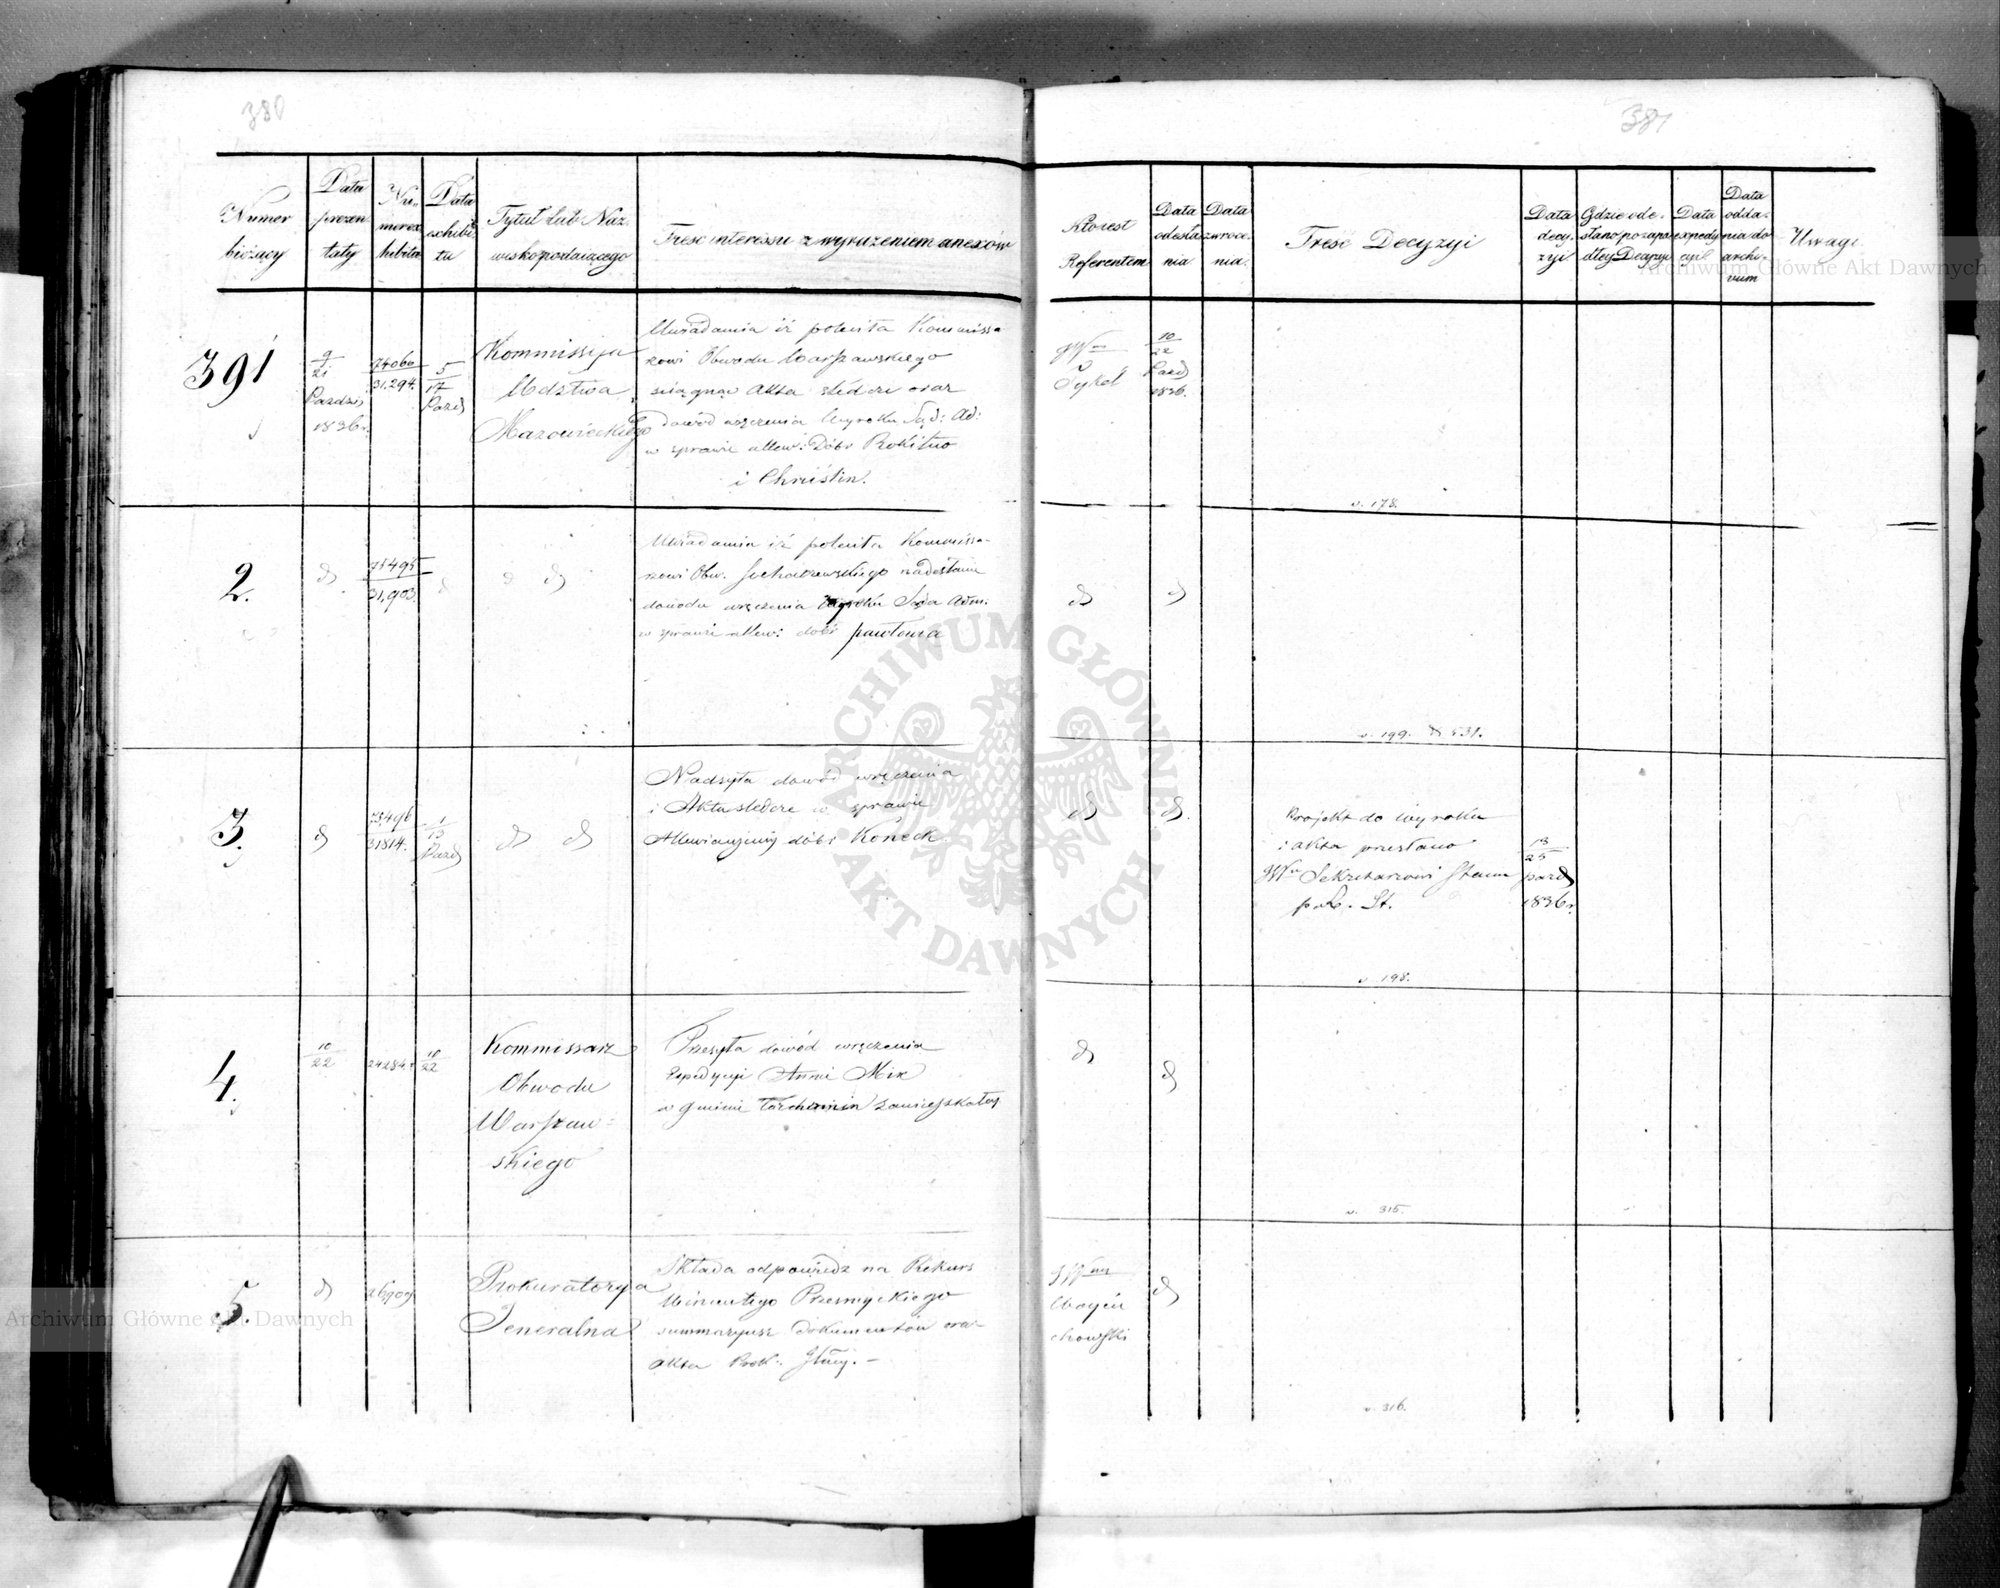 380
Numer
bieżący
Data
prezen
taty
Nu-
merex
hibitu
Data
exhibi-
tu
Tytuł lub Naz
wisko podaiącego
Treść interessu z wyrażeniem anexów
391
9/21
Pazdzi
1836 r.
74060
31.294.
5/17
Pazd
Kommissija
Wdztwa
Mazowieckiego
Uwiadamia iż poleciła Kommissa
rzowi Obwodu Warszawskiego
ściągnąć Akta śledcze oraz
dowód wręczenia Wyroku Sąd: Ad:
w sprawie allew: Dóbr Rokitno
i Chrustin.
2.
d
75495
31,903.
d
d d
Uwiadamia iż poleciła Kommissa-
rzowi Obw. Sochaczewskiego nadesłanie
dowodu wręczenia Wyroku Sądu Adm.
w sprawie allew: dóbr
3.
d
73496
31814.
1/13
Pazd
d d
Nadsyła dowód wręczenia
i Akta śledcze w sprawie
Allewiacyjney dóbr Koneck
4.
10/22
24284.
10/22
Kommissarz
Obwodu
Warszaw-
skiego
Przesyła dowód wręczenia
Expedycyi Annie Mix
w gminie zamieszkałey
5.
d
16909
Prokuratorya
Jeneralna
Składa odpowiedz na Rekurs
Wincentego Przesmyckiego
summaryusz dokumentów oraz
akta Prok:
381
Ktorest
Referentem
Data
odesła
nia
Data
zwroce-
nia.
Treść Decyzyi
Data
decy-
zyi
Gdzie ode-
słano po zapa
dłey Decyzyi
Data
expedy
cyi
Data
odda-
nia do
archi-
vum
Uwagi
JW
10/22
Pazd
1836.
v. 178.
d
d
v. 199. d 531.
d
d.
Projekt do Wyroku
i akta przesłano
JWu Sekretarzowi Stanu
przy R. St.
13/25
pazd
1836 r.
v. 198.
d
d
v. 315.
JW
Woycie
chowski
d
v. 316.
ARCHIWUM GŁÓWNE AKT DAWNYCH
Archiwum Główne Akt Dawnych
Archiwum Główne Akt Dawnych